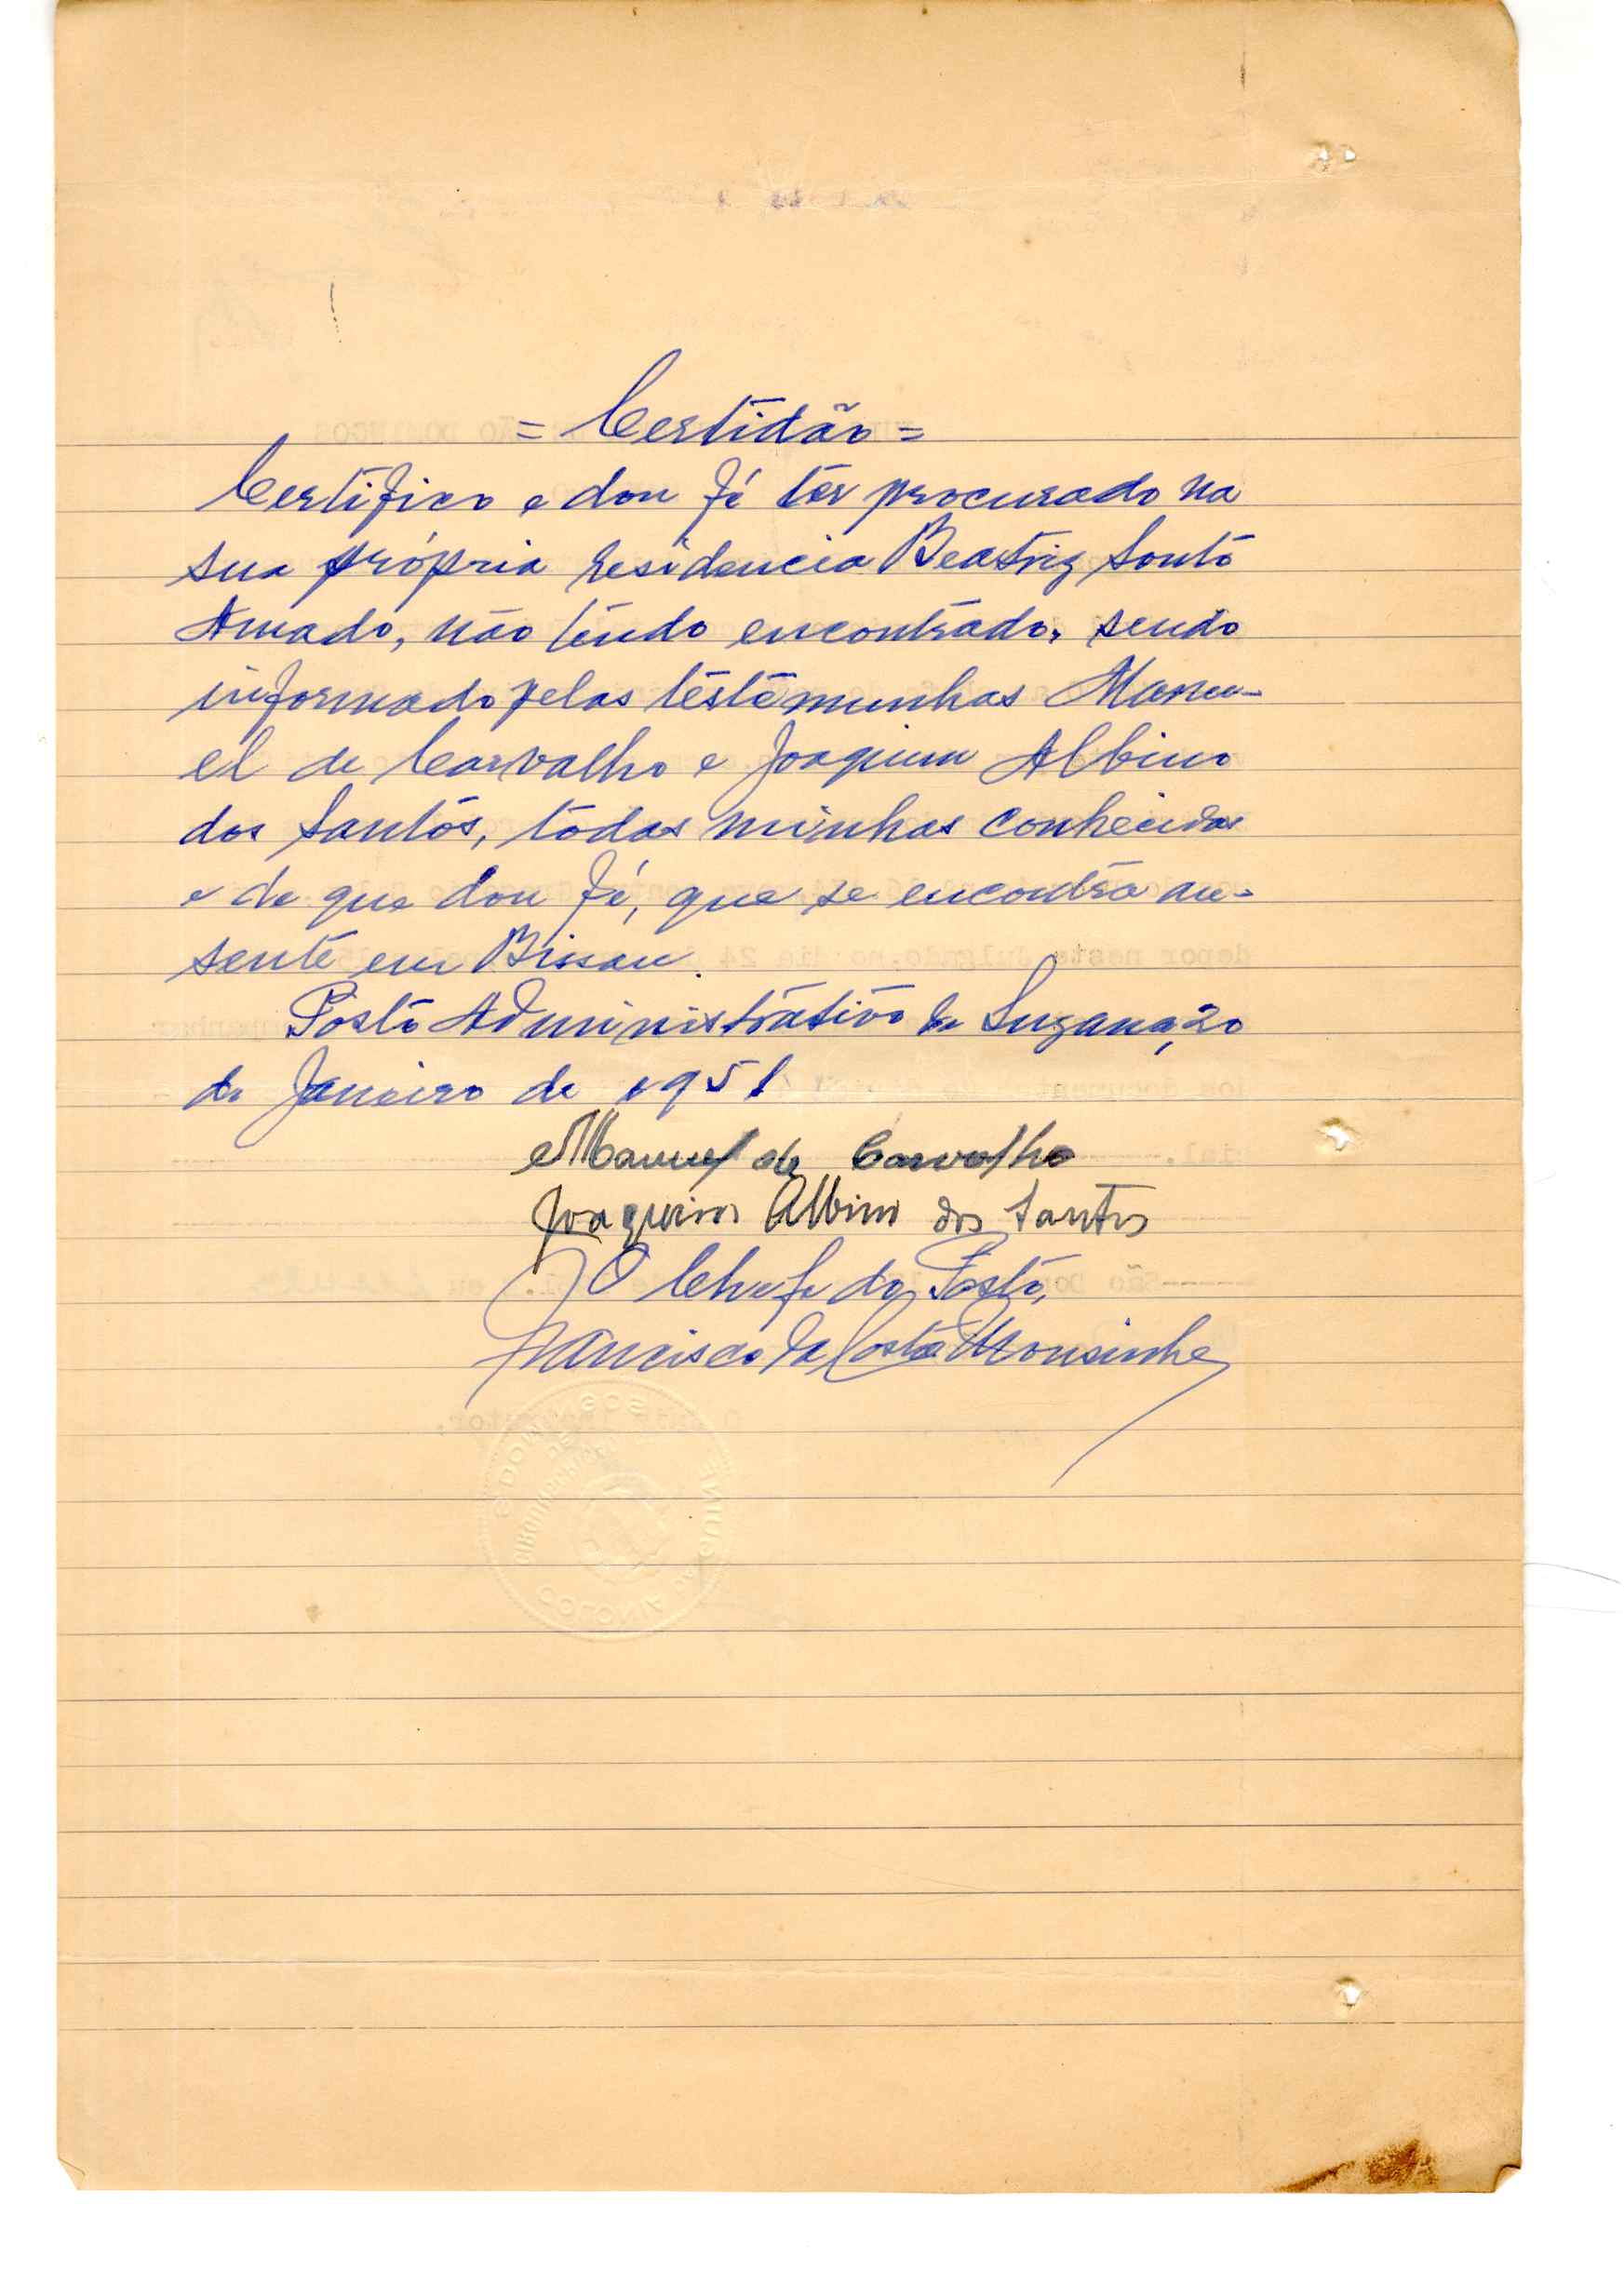 = Certidão =
Certifico e dou fé ter procurado na
sua própria residencia Beatriz Souto
Amado, não tendo encontrado, sendo
informado pelas testemunhas Manu-
el de Carvalho e Joaquim Albino
dos Santos, todas minhas conhecidas
e de que dou fé, que se encontra au-
sente em Bissau.
Posto Administrativo de Suzana, 20
de Janeiro de 1951
Manuel de Carvalho
Joaquim Albino dos Santos
O Chefe do Posto,
Francisco da Costa Mousinho